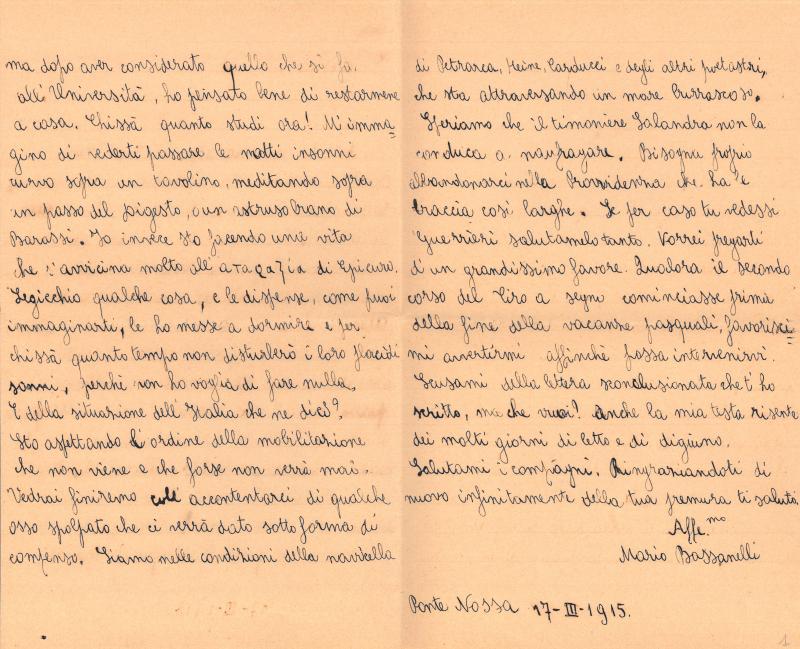 ma dopo aver considerato quello che si fa
all'Università, ho pensato bene di restarmene
a casa. Chissà quanto studi ora! M'imma=
gino di vederti passare le notti insonni
curvo sopra un tavolino, meditando sopra
un passo del Digesto, o un astruso brano di
Barassi. Io invece sto facendo una vita
che s'avvicina molto all' di Epicuro.
Legicchio qualche cosa, e le dispense, come puoi
immaginarti, le ho messe a dormire e per
chissà quanto tempo non disturberò i loro placidi
sonni, perchè non ho voglia di fare nulla.
E della situazione dell'Italia che ne dici?
Sto aspettando l'ordine della mobilitazione
che non viene e che forse non verrà mai.
Vedrai finiremo coll'accontentarci di qualche
osso spolpato che ci verrà dato sotto forma di
compenso. Siamo nelle condizioni della navicella
di Petrarca, Heine, Carducci e degli altri poetastri,
che sta attraversando un mare burrascoso.
Speriamo che il timoniere Salandra non la
conduca a naufragare. Bisogna proprio
abbandonarci nella Provvidenza che ha le
braccia così larghe. Se per caso tu vedessi
Guerrieri salutamelo tanto. Vorrei pregarti
d'un grandissimo favore. Qualora il secondo
corso del Tiro a segno cominciasse prima
della fine della vacanze pasquali, favorisci=
mi avvertirmi affinchè possa intervenirvi.
Scusami della lettera sconclusionata che t'ho
scritto, ma che vuoi! Anche la mia testa risente
dei molti giorni di letto e di digiuno.
Salutami i compagni. Ringraziandoti di
nuovo infinitamente della tua premura ti saluto.
Affe.mo
Mario Bassanelli
Ponte Nossa 17-III-1915.
1